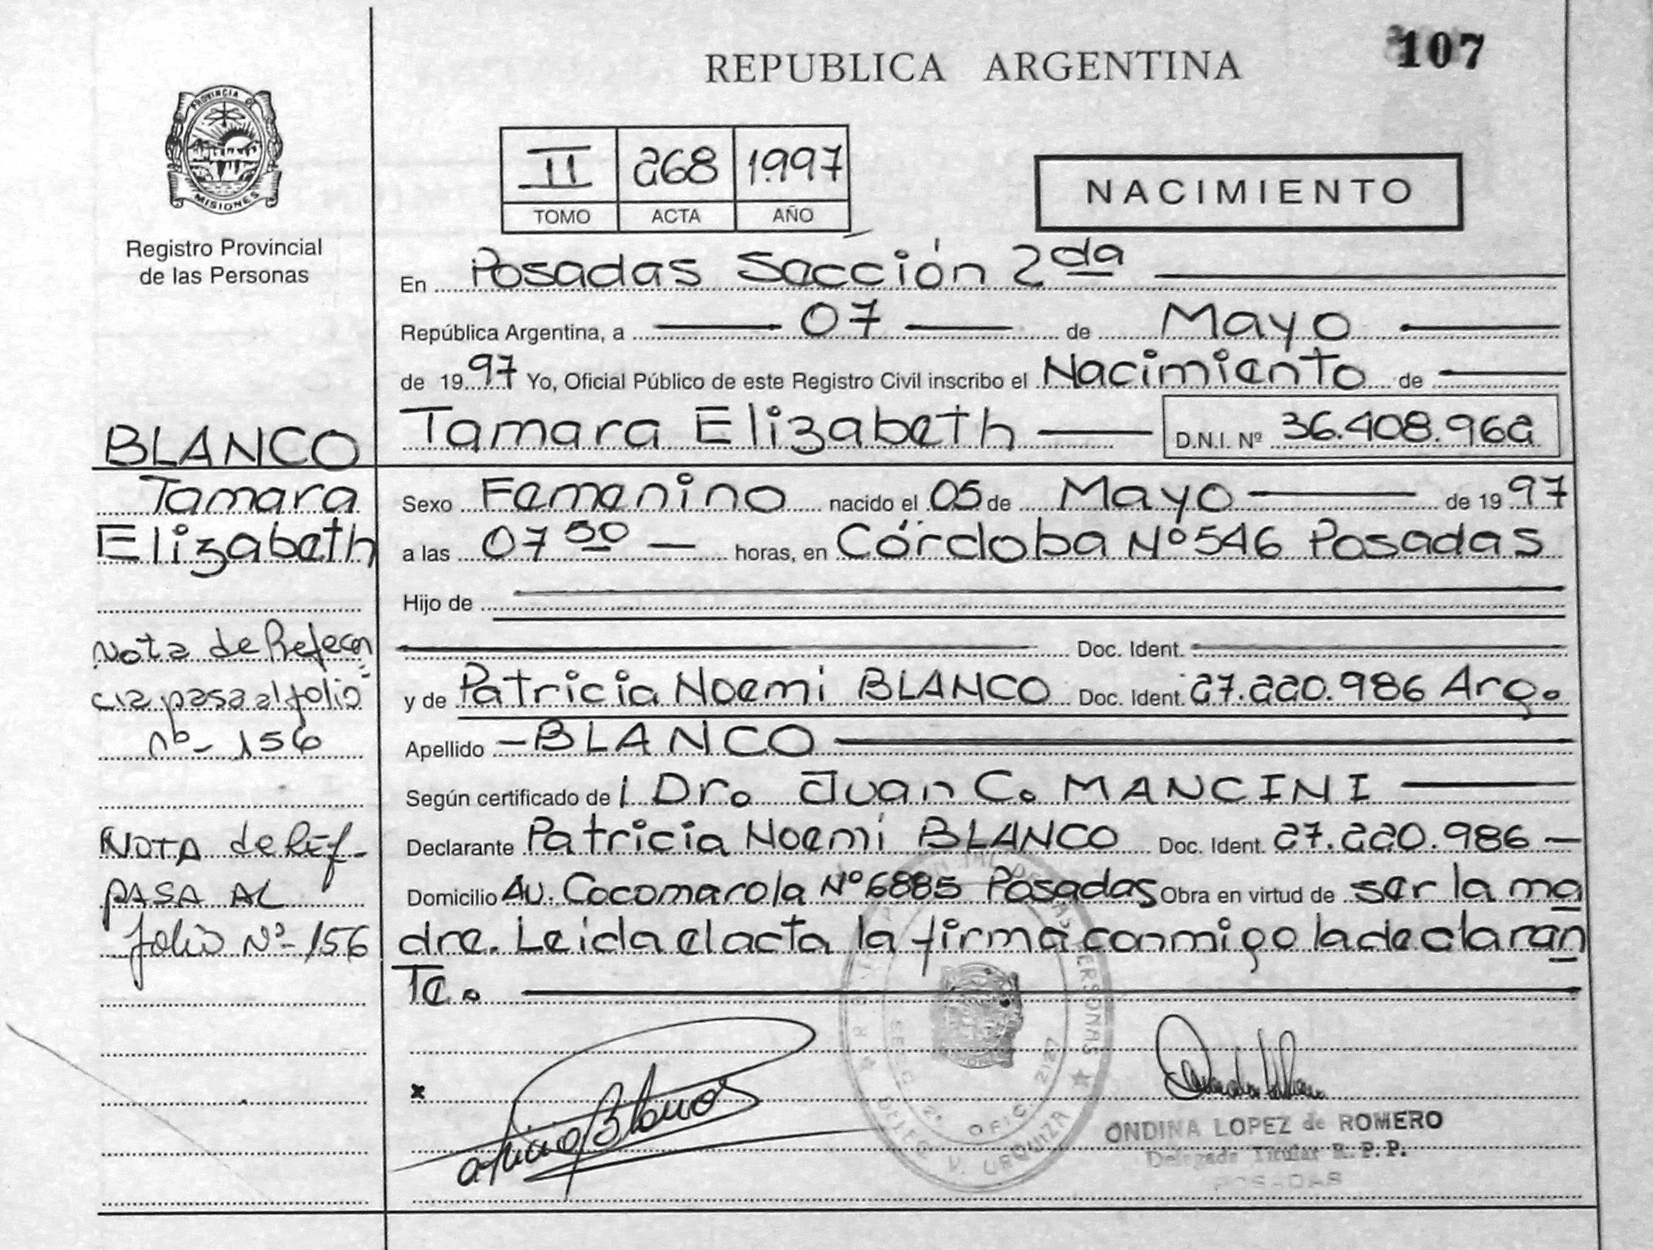 107
REPUBLICA ARGENTINA
PROVINCIA DE
MISIONES
Registro Provincial
de las Personas
II 268 1997
TOMO ACTA AÑO
NACIMIENTO
En Posadas Sección 2da
República Argentina, a 07 de Mayo
de 1997 Yo, Oficial Público de este Registro Civil inscribo el Nacimiento de
BLANCO
Tamara Elizabeth D.N.I. Nº 36.408.962
Tamara
Elizabeth
Sexo Femenino nacido el 05 de Mayo de 1997
a las 07 50 horas, en Córdoba Nº 546 Posadas
Hijo de
Doc. Ident.
Nota de Referen
cia pasa al folio
nº- 156
y de Patricia Noemi BLANCO Doc. Ident. 27.220.986 Arg.
Apellido -BLANCO
Según certificado de l Dr. Juan C. MANCINI
NOTA de Ref-
PASA AL
folio Nº- 156
Declarante Patricia Noemi BLANCO Doc. Ident. 27.220.986
Domicilio Av. Cocomarola Nº 6885 Posadas Obra en virtud de ser la ma
dre. Leida el acta la firma conmigo la declaran
te.
x
Blanco
SECC 2ª OFIC. 2127
DELEG. V. URQUIZA
ONDINA LOPEZ de ROMERO
Delegada Titular R.P.P.
POSADAS